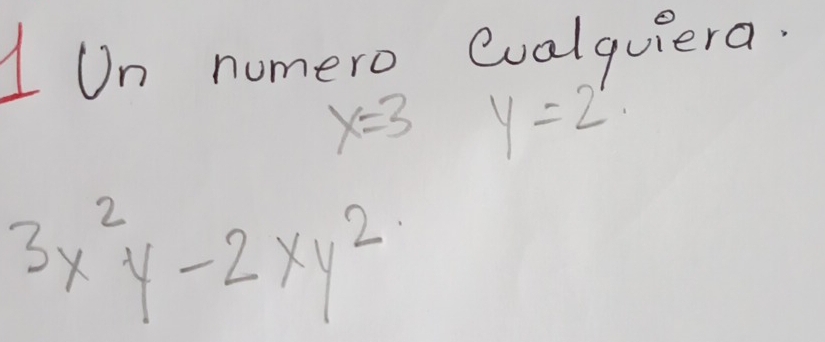 1 Un numero Cualquiera.
x=3 y=2.
3x²y-2xy².